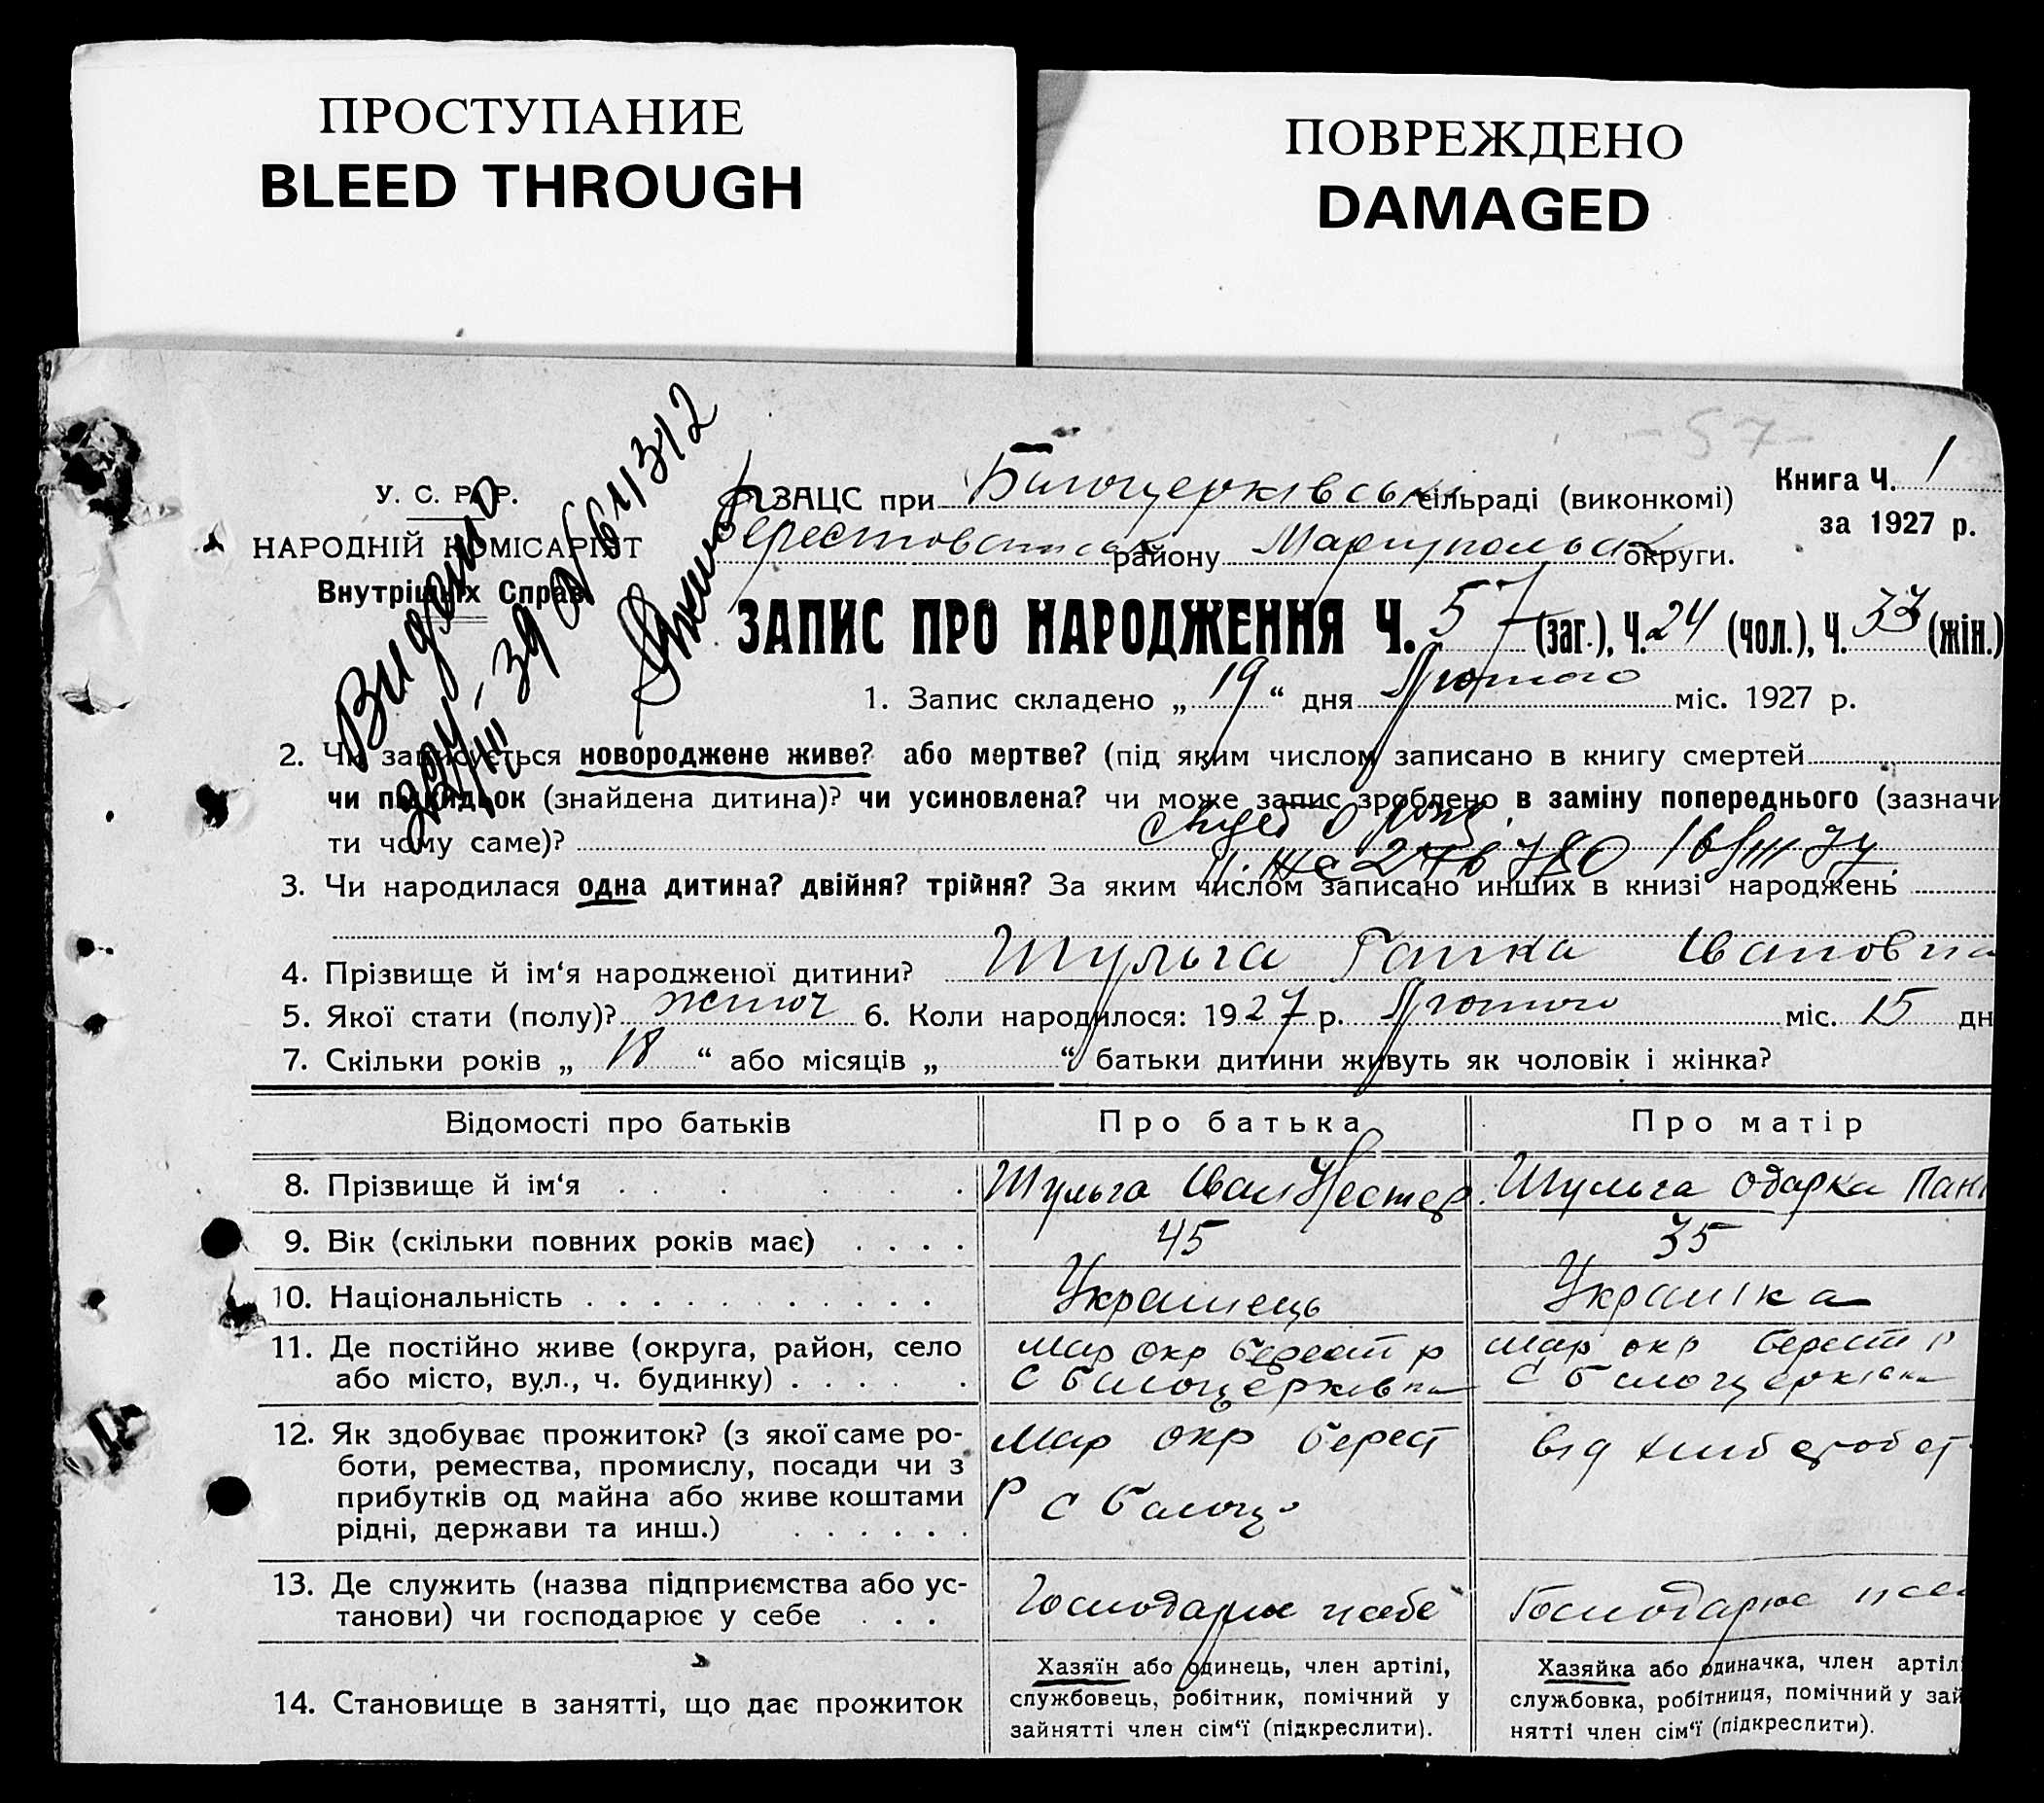 ПРОСТУПАНИЕ
BLEED THROUGH
ПОВРЕЖДЕНО
DAMAGED
- 57 -
У. С. Р. Р.
НАРОДНІЙ КОМІСАРІЯТ
Внутрішніх Справ
Видано
ЗАЦС при Білоцерківськ сільраді (виконкомі)
Берестов району Маріупольськ округи.
Книга Ч. 1
за 1927 р.
ЗАПИС ПРО НАРОДЖЕННЯ Ч. 57 (заг.), Ч. 24 (чол.), Ч. 33 (жін.)
1. Запис складено „ 19 “ дня Лютого міс. 1927 р.
2. Чи записується новороджене живе? або мертве? (під яким числом записано в книгу смертей
чи підкидьок (знайдена дитина)? чи усиновлена? чи може запис зроблено в заміну попереднього (зазначи
ти чому саме)?
3. Чи народилася одна дитина? двійня? трійня? За яким числом записано инших в книзі народжень
4. Прізвище й ім‘я народженої дитини? Шульга Ганка Івановна
5. Якої стати (полу)? жіноч 6. Коли народилося: 1927 р. Лютого міс. 15 дн
7. Скільки років „ 18 “ або місяців „ “ батьки дитини живуть як чоловік і жінка?
Відомості про батьків Про батька Про матір
8. Прізвище й ім‘я Шульга Іван Нестер. Шульга Одарка Пан
9. Вік (скільки повних років має) 45 35
10. Національність Украінець Украінка
11. Де постійно живе (округа, район, село Мар окр берест р Мар окр берест р
або місто, вул., ч. будинку) С білоцерківка С білоцерківка
12. Як здобуває прожиток? (з якої саме ро- Мар окр берест від хліборобст
боти, ремества, промислу, посади чи з
прибутків од майна або живе коштами Р С білоц
рідні, держави та инш.)
13. Де служить (назва підприємства або ус- Господарює у себе Господарює у се
танови) чи господарює у себе
14. Становище в занятті, що дає прожиток
Хазяїн або одинець, член артілі,
службовець, робітник, помічний у
зайнятті член сім‘ї (підкреслити).
Хазяйка або одиначка, член артіл
службовка, робітниця, помічний у зай
нятті член сім‘ї (підкреслити).